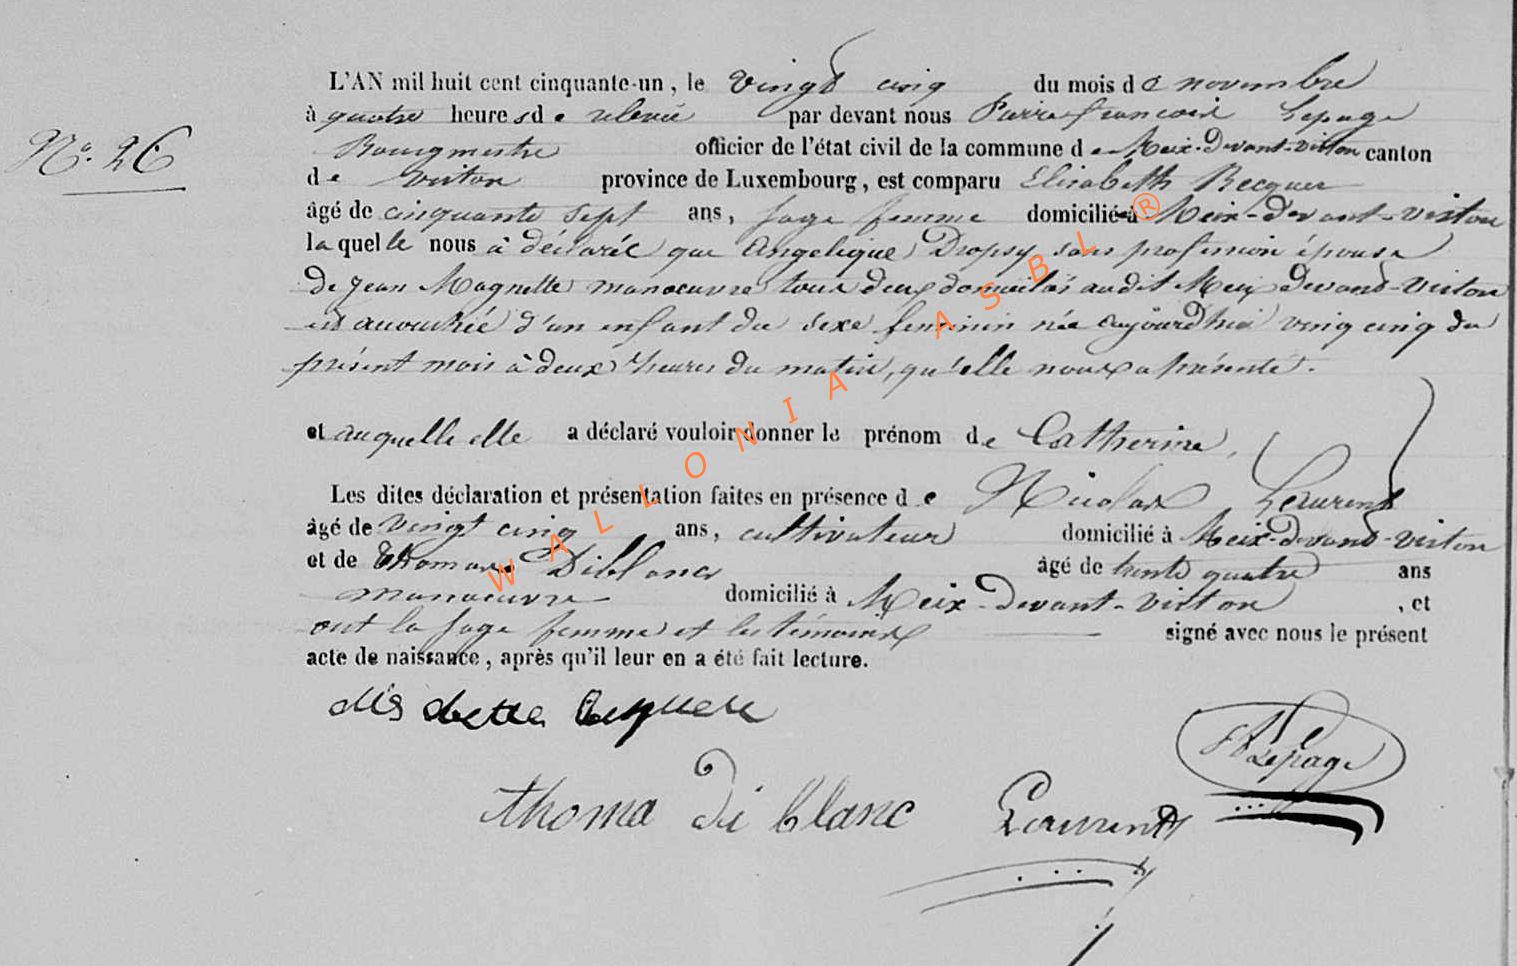 N.o 26
L'AN mil huit cent cinquante-un, le vingt cinq du mois de novembre
à quatre heures de relevée par devant nous Pierre françois Lepage
Bourgmestre officier de l'état civil de la commune de Meix-devant-virton canton
de virton province de Luxembourg, est comparu Elisabeth Becquer
âgé de cinquante sept ans, sage femme domiciliée à Meix-devant-virton
laquelle nous à déclarée que Angelique Dropsy sans profession épouse
de Jean Magnette manoeuvre tous deux domiciliés audit Meix devant-Virton
est accouchée d'un enfant du sexe feminin née aujourd'hui vingt cinq du
présent mois à deux heures du matin, qu'elle nous a présenté.
et auquelle elle a déclaré vouloir donner le prénom de Catherine,
Les dites déclaration et présentation faites en présence de Nicolas Laurent
âgé de vingt cinq ans, cultivateur domicilié à Meix-devant-virton
et de Thomas Diblanc âgé de trente quatre ans
manoeuvre domicilié à Meix-devant-virton, et
ont la sage femme et les témoins signé avec nous le présent
acte de naissance, après qu'il leur en a été fait lecture.
thoma di blanc Laurent Lepage
WALLONIA ASBL ®